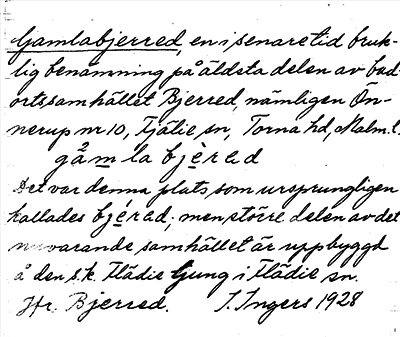 Gamlabjerred, en i senare tid bruk-
lig benämning på äldsta delen av bad-
ortssamhället Bjerred, nämligen Ön-
nerup nr 10, Fjälie sn, Torna hd, Malm. l.
gåmla bjèrad
Det var denna plats, som ursprungligen
kallades bjérad; men större delen av det
nuvarande samhället är uppbyggd
å den s.k. Flädie Ljung i Flädie sn.
Jfr. Bjerred. I. Ingers 1928